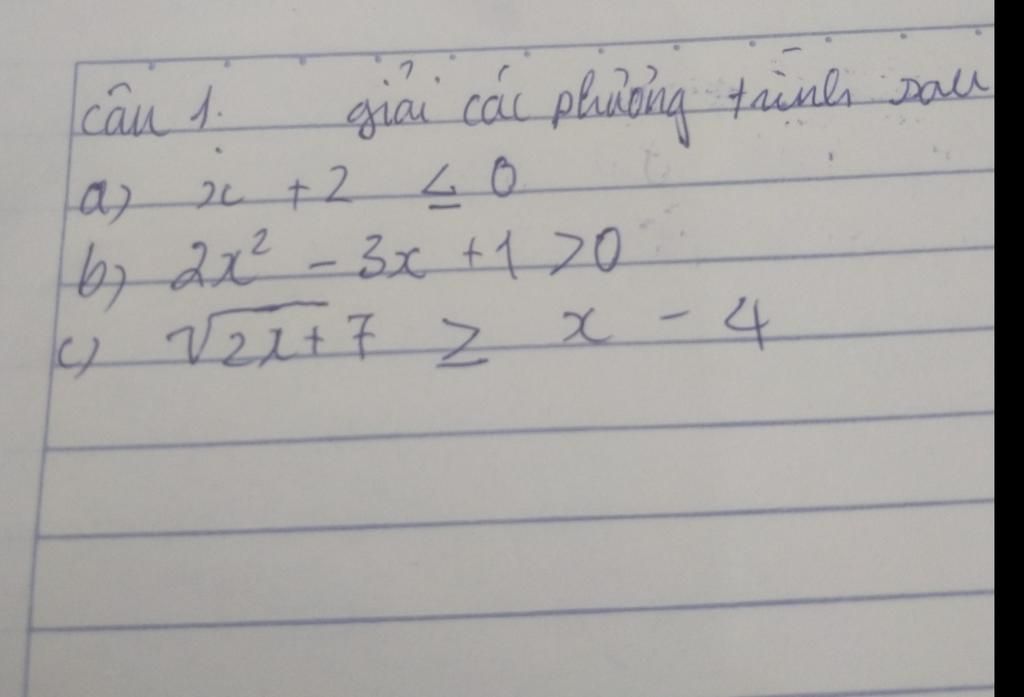 Câu 1. giải các phưởng trình sau
a) x + 2 ≤ 0
b) 2x² - 3x + 1 > 0
c) √2x+7 ≥ x - 4